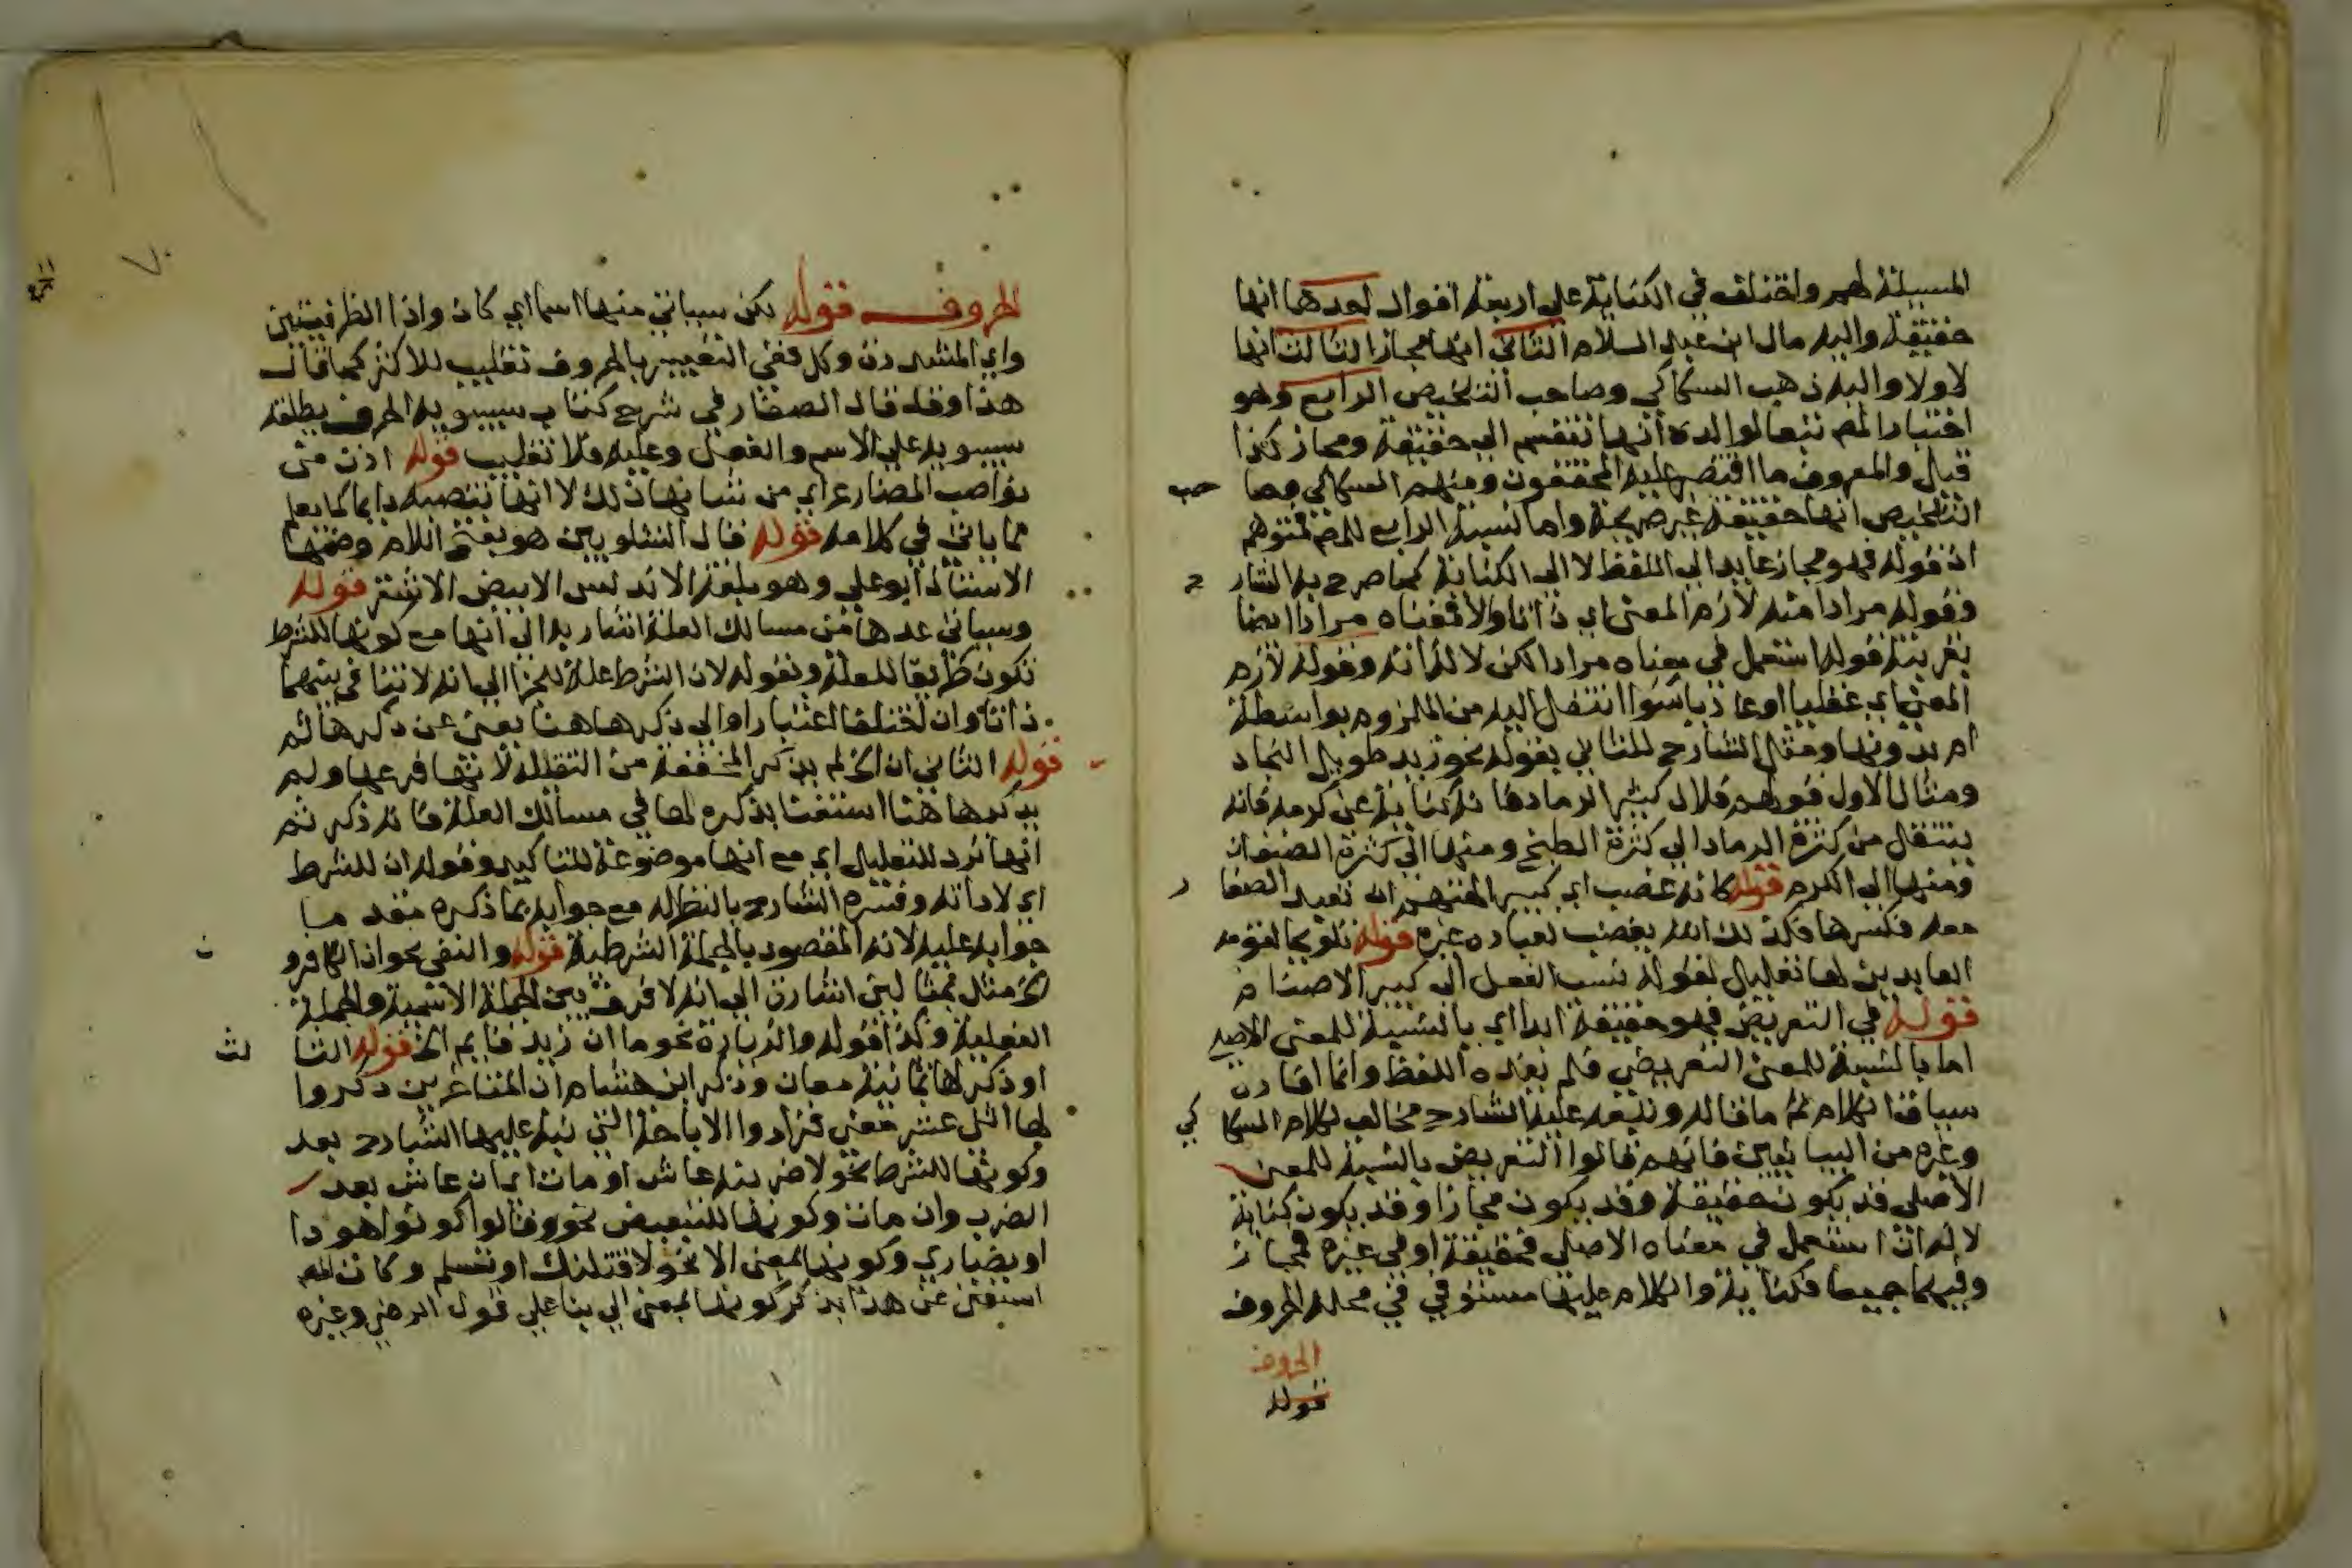 المسيلة لهم واختلف في الكناية علي اربعة اقوال احدها انها
حقيقة واليه مال ابن عبد السلام الثاني انها مجاز الثالث انها
لا ولا واليه ذهب السكاكي وصاحب التلخيص الرابع وهو
اختيار المص تبعا لوالده انها تنقسم الي حقيقة ومجاز كذا
قيل والمعروف ما اقتصر عليه المحققون ومنهم السكاكي وصا حب
التلخيص انها حقيقة غير صريحة واما نسبة الرابع للمص فتوهم
اذ قوله فهو مجاز عايد الي اللفظ لا الي الكناية كما صرح به الشار ح
وقوله مرادا منه لازم المعني اي ذاتا والا فمعناه مرادا ايضا
بقرينة قوله استعمل في معناه مرادا لكن لا لذاته وقوله لازم
المعني اي عقليا او عاديا سوا انتقل اليه من الملزوم بواسطة
ام بدونها ومثل الشارح للثاني بقوله نحو زيد طويل النجاد
ومثال الاول قولهم فلان كثير الرماد فانه كناية عن كرمه فانه
ينتقل من كثرة الرماد الي كثرة الطبخ ومنها الي كثرة الضيفان
ومنها الي الكرم قوله كانه غضب اي كبير الصنم ان تعبد الصغا ر
معه فكسرها فكذلك الله يغضب لعبادة غيره قوله تلويحا لقومه
العابدين لها تعليل لقوله نسب الفعل الي كبير الاصنام
قوله في التعريض فهو حقيقة ابدا اي بالنسبة للمعني الاصلي
اما بالنسبة للمعني التعريضي فلم يفده اللفظ وانما افاده
سياق الكلام ثم ما قاله وتبعه عليه الشارح مخالف لكلام السكا كي
وغيره من البيانيين فانهم قالوا التعريض بالنسبة للمعني
الاصلي قد يكون حقيقة وقد يكون مجازا وقد يكون كناية
لانه ان استعمل في معناه الاصلي فحقيقة او في غيره فمجاز
وفيهما جميعا فكناية والكلام عليها مستوفي في محله الحروف
الحروف
قوله
الحروف قوله لكن سياتي منها اسما اي كاذ واذا الظرفيتين
واي المشددة وكل ففي التعبير بالحروف تغليب للاكثر كما قال
هذا وقد قال الصفار في شرح كتاب سيبويه الحرف يطلقه
سيبويه علي الاسم والفعل وعليه فلا تغليب قوله اذن من
نواصب المضارع اي من شانها ذلك لا انها تنصبه دايما كما يعلم
مما ياتي في كلامه قوله قال الشلوبين هو بفتح اللام وضمها
الاستاذ ابو علي وهو بلغة الاندلس الابيض الاشقر قوله
وسياتي عدها من مسالك العلة اشار به الي انها مع كونها للشرط
تكون طريقا للعلة وبقوله لان الشرط علة للجزا الي انه لا تنافي بينهما
ذاتا وان اختلفا اعتبارا والي ذكرها هنا يغني عن ذكرها ثم
قوله الثاني ان الخ لم يذكر المخففة من الثقيلة لانها فرعها ولم
يذكرها هنا استغنا بذكره لها في مسالك العلة فانه ذكر ثم
انها ترد للتعليل اي مع انها موضوعة للتاكيد وقوله ان للشرط
اي لاداته وفسره الشارح بالنظر له مع جوابه بما ذكره مقدما
جوابه عليه لانه المقصود بالجملة الشرطية قوله والنفي نحو ان الكافرو ن
الخ مثل بمثالين اشارة الي انه لا فرق بين الجملة الاسمية والجملة
الفعلية وكذا قوله والزيادة نحو ما ان زيد قايم الخ قوله الثا لث
او ذكر لها ثمانية معان وذكر ابن هشام ان المتاخرين ذكروا
لها اثني عشر معني فزادوا الاباحة التي نبه عليها الشارح بعد
وكونها للشرط نحو لاضربنه عاش او مات اي ان عاش بعد
الضرب وان مات وكونها للتبعيض نحو وقالوا كونوا هودا
او نصاري وكونها بمعني الا نحو لاقتلنك او تسلم وكان المص
استغني عن هذا بذكر كونها بمعني الي بنا علي قول الرضي وغيره